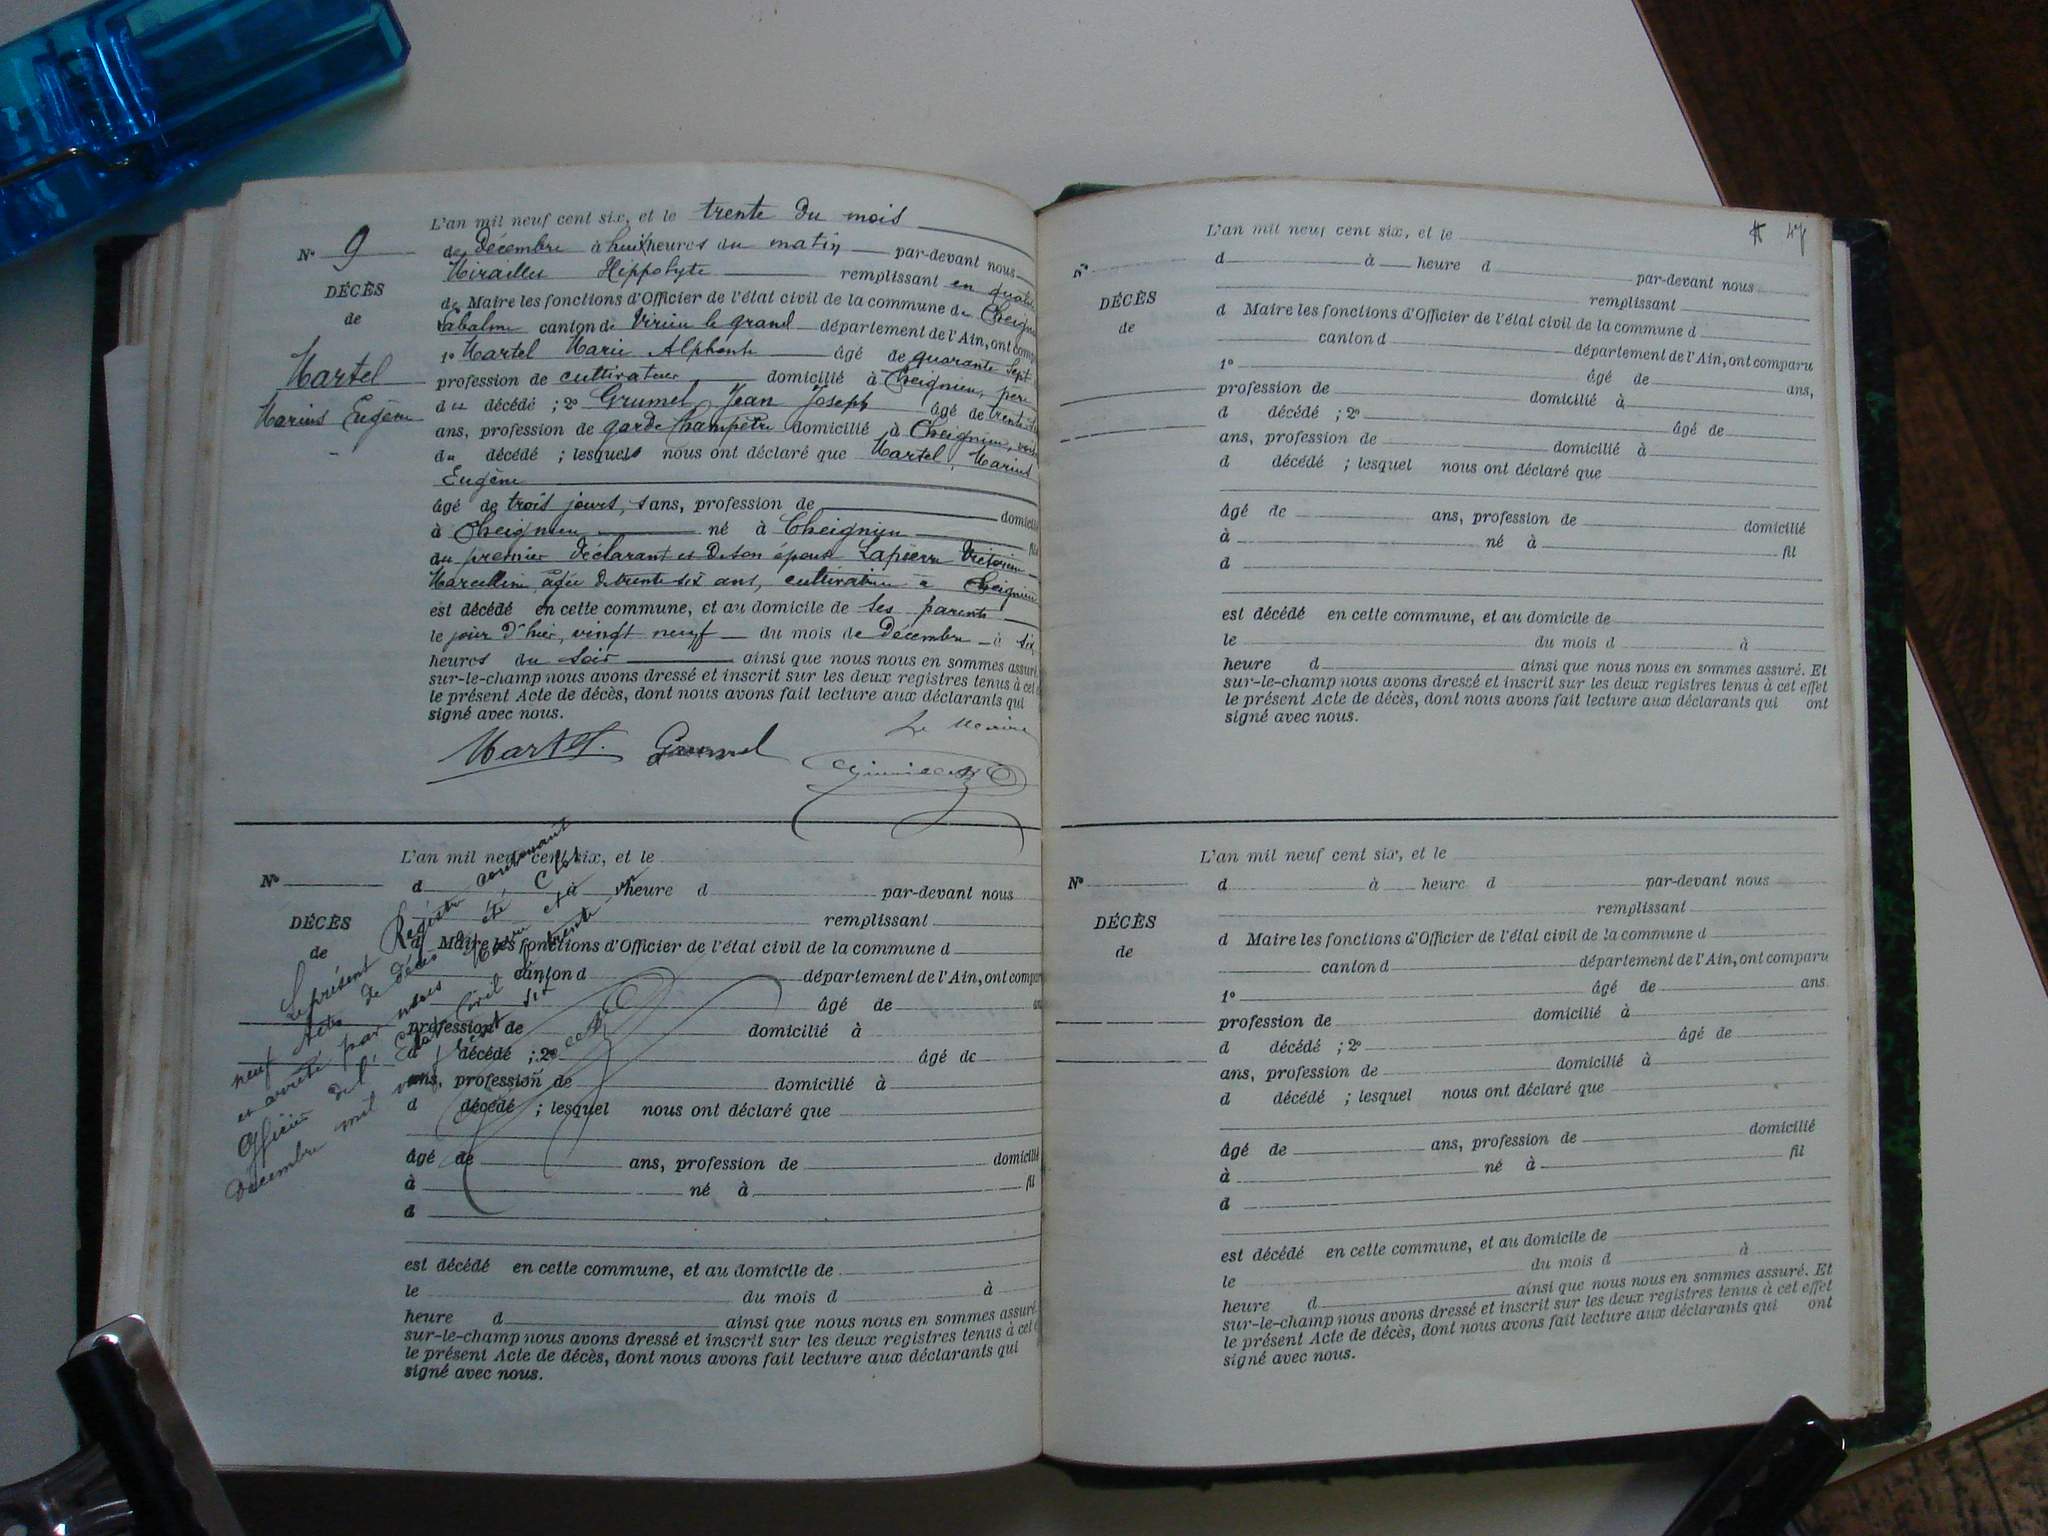 L'an mil neuf cent six, et le trente du mois
N° 9
de décembre à huit heures du matin par-devant nous
Miraillet Hippolyte remplissant en qualité
DÉCÈS
de Maire les fonctions d'Officier de l'état civil de la commune de Cheignieu
de
Labalme canton de Virieu le grand département de l'Ain, ont comparu
1° Martel Marie Alphonse âgé de quarante sept
Martel
profession de cultivateur domicilié à Cheignieu, père
Marius Eugène
du décédé ; 2° Grumel Jean Joseph âgé de trente
ans, profession de garde Champêtre domicilié à Cheignieu,
du décédé ; lesquels nous ont déclaré que Martel, Marius
Eugène
âgé de trois jours, sans, profession de domicilié
à Cheignieu né à Cheignieu fil
du premier déclarant et de son épouse Lapierre
Marcelline, agée de trente six ans, à Cheignieu
est décédé en cette commune, et au domicile de ses parents
le jour d'hier, vingt neuf du mois de Décembre à six
heures du soir ainsi que nous nous en sommes assuré
sur-le-champ nous avons dressé et inscrit sur les deux registres tenus à cet
le présent Acte de décès, dont nous avons fait lecture aux déclarants qui
signé avec nous.
Le Maire
Martel. Grumel
L'an mil neuf cent six, et le
N° d à heure d par-devant nous
remplissant
DÉCÈS
d Maire les fonctions d'Officier de l'état civil de la commune d
de
canton d département de l'Ain, ont comparu
âgé de
profession de domicilié à
d décédé ; 2° âgé de
ans, profession de domicilié à
d décédé ; lesquel nous ont déclaré que
âgé de ans, profession de domicilié
à né à fil
d
est décédé en cette commune, et au domicile de
le du mois d à
heure d ainsi que nous nous en sommes assuré
sur-le-champ nous avons dressé et inscrit sur les deux registres tenus à cet
le présent Acte de décès, dont nous avons fait lecture aux déclarants qui
signé avec nous.
Le présent Registre contenant
neuf Actes de décès a été Clos
et arrêté par nous Maire et
Officier de l'Etat Civil le trente un
Décembre mil neuf cent six
47
L'an mil neuf cent six, et le
N°
d à heure d par-devant nous
remplissant
DÉCÈS
d Maire les fonctions d'Officier de l'état civil de la commune d
de
canton d département de l'Ain, ont comparu
1° âgé de ans,
profession de domicilié à
d décédé ; 2° âgé de
ans, profession de domicilié à
d décédé ; lesquel nous ont déclaré que
âgé de ans, profession de domicilié
à né à fil
d
est décédé en cette commune, et au domicile de
le du mois d à
heure d ainsi que nous nous en sommes assuré. Et
sur-le-champ nous avons dressé et inscrit sur les deux registres tenus à cet effet
le présent Acte de décès, dont nous avons fait lecture aux déclarants qui ont
signé avec nous.
L'an mil neuf cent six, et le
N° d à heure d par-devant nous
remplissant
DÉCÈS
d Maire les fonctions d'Officier de l'état civil de la commune d
de
canton d département de l'Ain, ont comparu
1° âgé de ans.
profession de domicilié à
d décédé ; 2° âgé de
ans, profession de domicilié à
d décédé ; lesquel nous ont déclaré que
âgé de ans, profession de domicilié
à né à fil
d
est décédé en cette commune, et au domicile de
le du mois d à
heure d ainsi que nous nous en sommes assuré. Et
sur-le-champ nous avons dressé et inscrit sur les deux registres tenus à cet effet
le présent Acte de décès, dont nous avons fait lecture aux déclarants qui ont
signé avec nous.